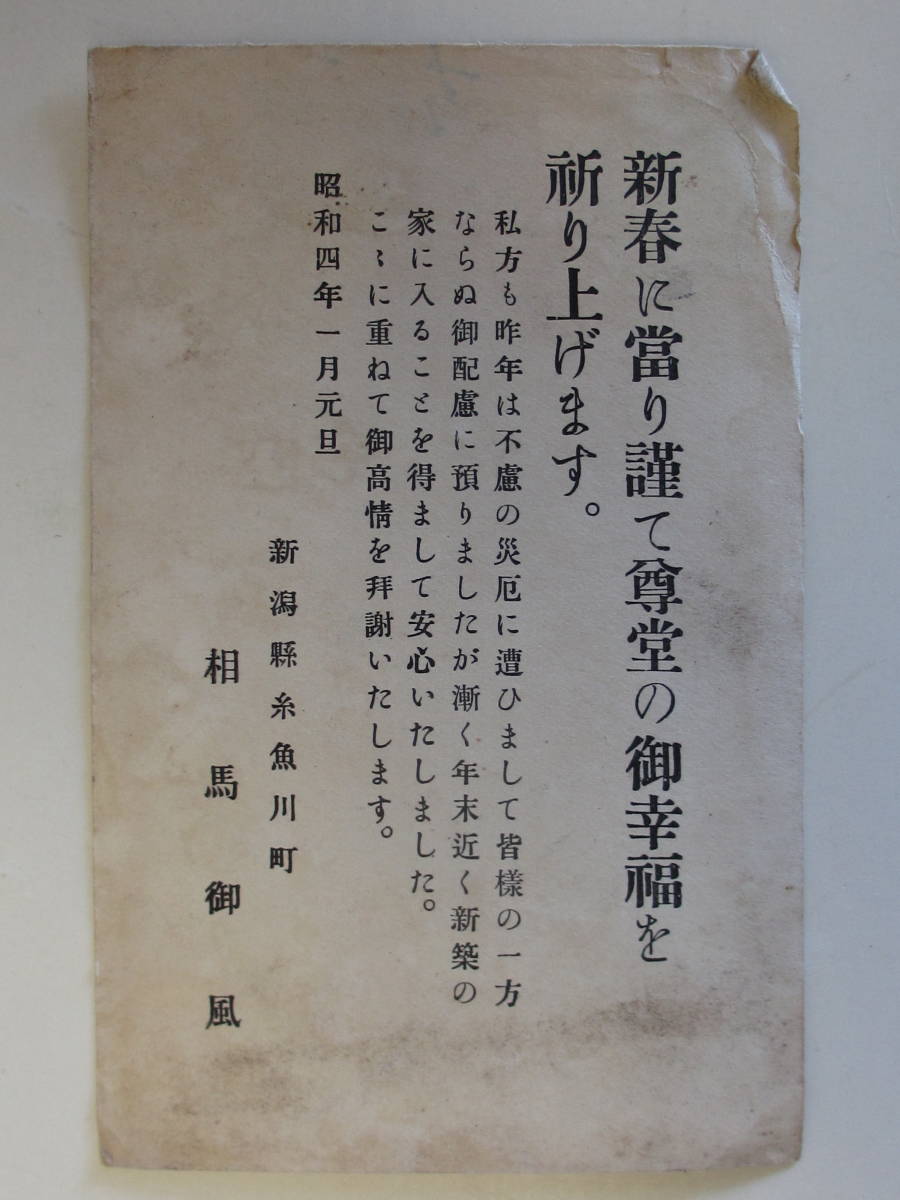 新春に當り謹て尊堂の御幸福を
祈り上げます。
私方も昨年は不慮の災厄に遭ひまして皆樣の一方
ならぬ御配慮に預りましたが漸く年末近く新築の
家に入ることを得まして安心いたしました。
こゝに重ねて御高情を拜謝いたします。
昭和四年一月元旦
新潟縣糸魚川町
相馬御風